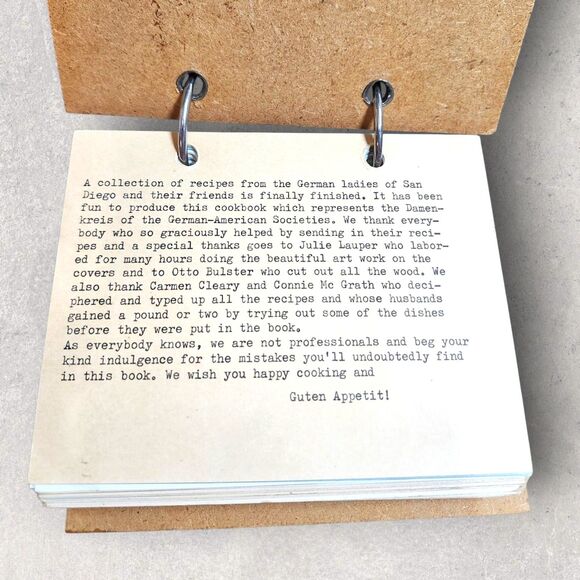 A collection of recipes from the German ladies of San
Diego and their friends is finally finished. It has been
fun to produce this cookbook which represents the Damen-
kreis of the German-American Societies. We thank every-
body who so graciously helped by sending in their reci-
pes and a special thanks goes to Julie Lauper who labor-
ed for many hours doing the beautiful art work on the
covers and to Otto Bulster who cut out all the wood. We
also thank Carmen Cleary and Connie Mc Grath who deci-
phered and typed up all the recipes and whose husbands
gained a pound or two by trying out some of the dishes
before they were put in the book.
As everybody knows, we are not professionals and beg your
kind indulgence for the mistakes you'll undoubtedly find
in this book. We wish you happy cooking and
Guten Appetit!